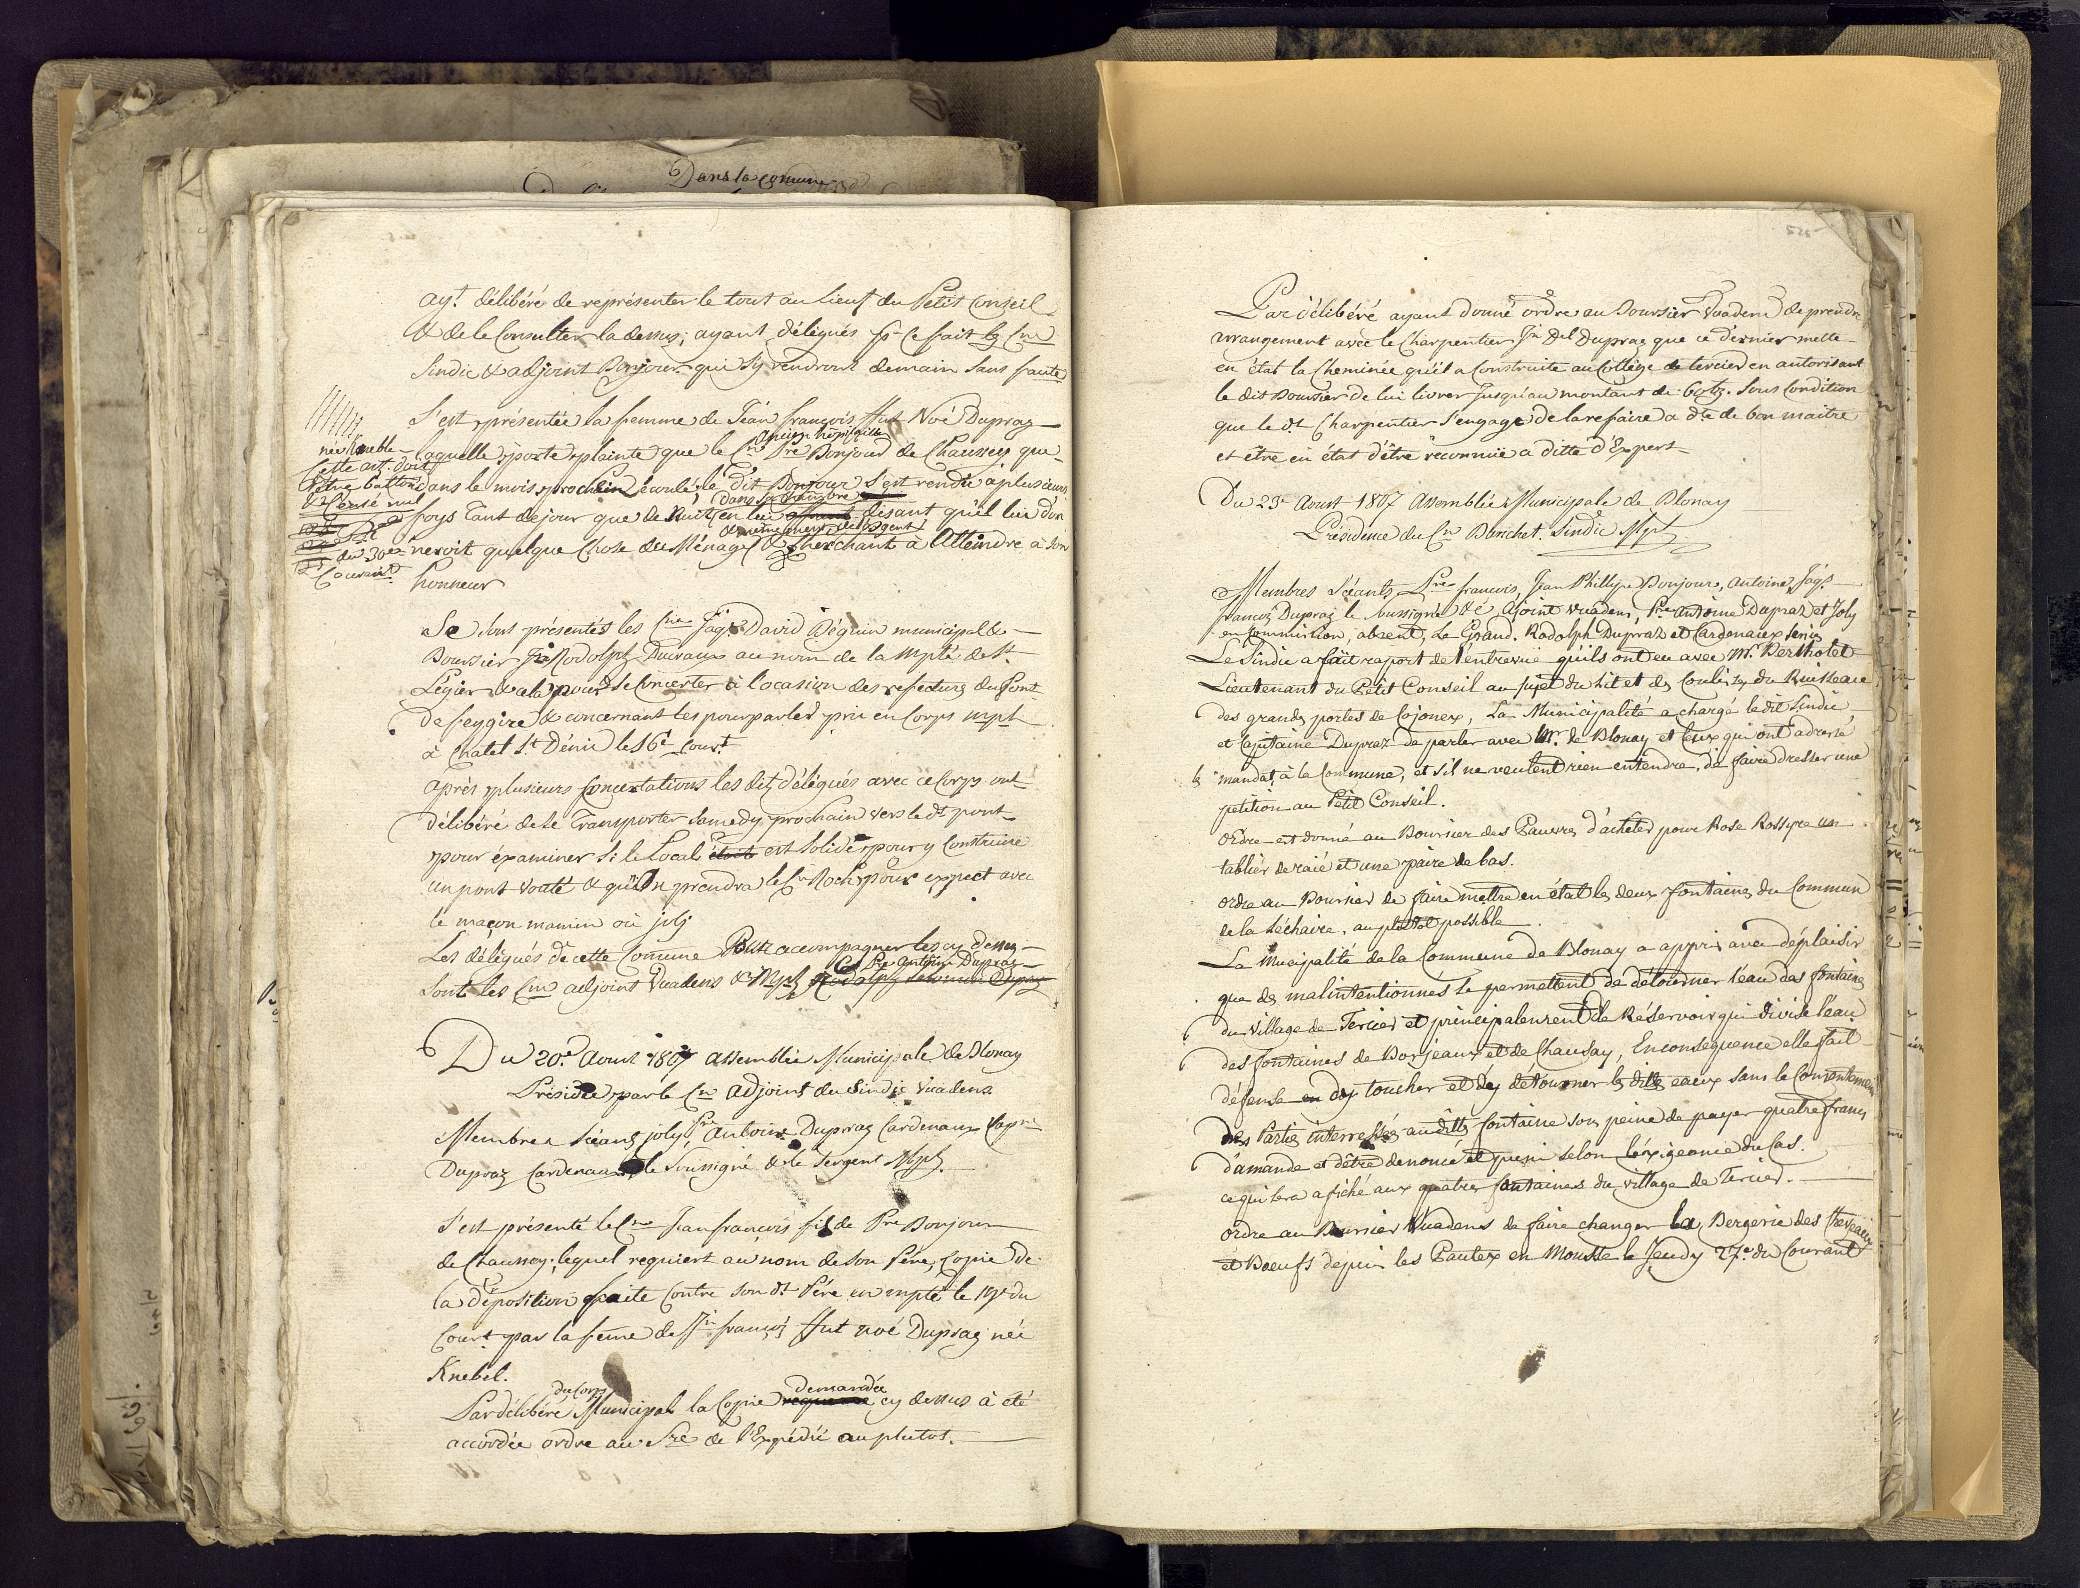 Dans la comune
ayt. délibéré de représenter le tout au Lieut du Petit Conseil
& de le Consulter la dessus; ayant délégués pr ce fait les Cns
Sindic & adjoint Bonjour qui s'y rendront demain sans faute
S'est présentée la femme de Jean françois ffut Noé Dupraz
née Knebel laquelle porte plainte que le Cn Pre Bonjour de Chaussey que
dans le mois prochain écoulé, le dit Bonjour s'est rendu a plusieurs
Dans sa Chambre
foys Tant de jour que de Nuit en lui disant qu'il lui don
neroit quelque Chose du Ménage & cherchant à Atteindre à son
honneur
Cette art. doit
être battoné
& Censé nul
du 30e
Courant
Se sont présentés les Cns Jaqs David Béguin municipal &
Boursier Jn Rodolph Ducraux au nom de la Mpté de St.
Légier & pour se Concerter à l'ocasion des refectures du Pont
de feygire & concernant les pourparlés pris en Corps mpl
à Chatel St. Dénis le 16e Court
après plusieurs Concertations les dits délégués avec ce Corps ont
délibéré de se Transporter Samedy prochain vers le dt pont
pour éxaminer si le Local étoit est solide pour y Construire
un pont vouté & qu'on prendra le Cn Roch pour expert avec
le maçon mamin ou joly
Les délégués de cette Comune Pour accompagner les cy dessus
Cn Pre Antoine Dupraz
sont les Cns adjoint Vuadens & Mpl Rodolph
Du 20e. Aoust 1807 assemblée Municipale de Blonay
Présidée par le Cn adjoint du Sindic Vuadens.
Membres Séans joly, Pre Antoine Dupraz Cardenaux Capne
Dupraz Cardenaux le Soussigné & le Sergent Mpl.
S'est présenté le Cn Jean françois fils de Pre Bonjour
de Chaussey; lequel requiert au nom de son Père, Copie de
la déposition faite Contre son dt Père en mpté le 19e du
Court par la feme de Jn françs ffut noé Dupraz née
Knebel.
du Corps
demandée
Par délibéré Municipal la Copie requise cy dessus à été
accordée ordre au Sre de l'Expédié au plutot.
525
Par délibéré ayant donné ordre au Boursier Vuadens de prendre
arrangement avec le Charpentier Jn Dl Dupraz que ce dernier mette
en état la Cheminée qu'il a Construite au Collège de tercier en autorisant
le dit Boursier de lui livrer Jusqu'au montant de 60 fs. Sous Condition
que le dt. Charpentier s'engage de la refaire a dte de bon maitre
et être en état d'être reconnüe a ditte d'Expert
Du 23e Aoust 1807 Assemblée Municipale de Blonay
Présidence du Cn Bonichet. Sindic Mpl
Membres Séants, Pre francois, Jean Phillipe Bonjour, Antoine, Jaqs.
francois Dupraz le sussigné & l'Ajoint Vuadens, Pre Antoine Dupraz et Joly
en Commission, absent, Le Grand. Rodolph Dupraz et Cardenaux
Le Sindic a fait raport de l'entrevüe qu'ils ont eu avec Mr. Berthotet
Lieutenant du Petit Conseil au sujet du Lit et des Coulisses du Ruisseau
des grandes portes de Cojonex, La Municipalité a chargé le dit Sindic
et Capitaine Dupraz de parler avec Mr. de Blonay et Ceux qui ont adressé
les mandats à la Commune, et s'il ne veulent rien entendre, de faire dresser une
petition au Petit Conseil.
Ordre est donné au Boursier des Pauvres d'acheter pour Rose Rossyre un
tablier de raié et une paire de bas.
ordre au Boursier de faire mettre en état les deux fontaines du Commun
de la Léchaire, au plutot possible
La Mucipalité de la Commune de Blonay a appris avec déplaisir
que des malintentionnés se permettent de détourner l'eau des fontaines
du village de Tercier et principalement le Réservoir qui divise l'eau
des fontaines de Borjeaux et de Chausay, En consequence elle fait
défense en d'y toucher et d'y détourner les dittes eaux sans le Consentement
Des Parties interressées audittes fontaine sous peine de payer quatre francs
d'amande et d'être denoncé et puni selon l'éxigeance du Cas.
ce qui sera afiché aux quatres fontaines du village de Tercier.
ordre au Boursier Vuadens de faire changer la Bergerie des Chevaux
et Boeufs depuis les Pautex en Mousse le Jeudy 27e. du Courant